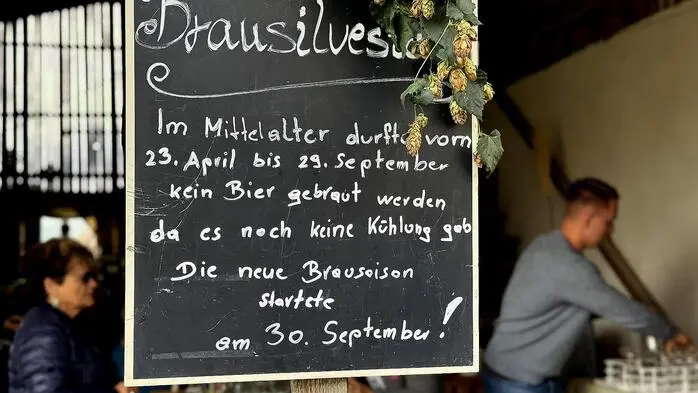 Brausilvester
Im Mittelalter durfte vom
23. April bis 29. September
kein Bier gebraut werden
da es noch keine Kühlung gab
Die neue Brausaison
startete
am 30. September!